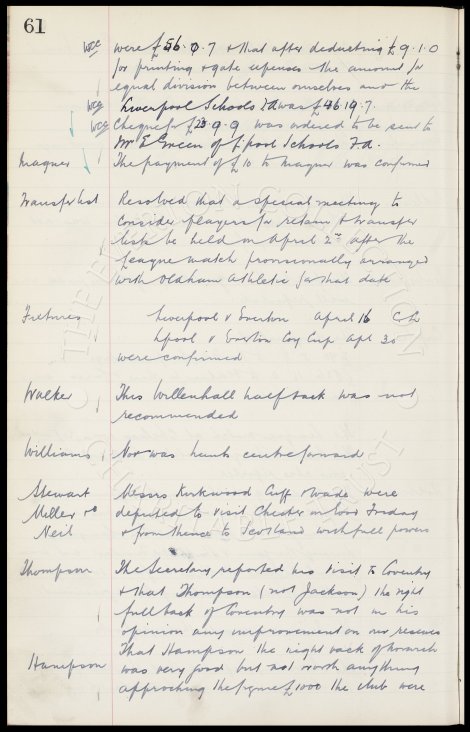 61
were £56.0.7 & that after deducting £9.1.0
for printing & gate expenses the amount for
equal division between ourselves and the
Liverpool Schools Fd was £46.19.7.
Cheque for £23.9.9 was ordered to be sent to
Mr E Green of L'pool Schools Fd.
Magner The payment of £10 to Magner was confirmed
Transfer list Resolved that a special meeting to
consider players for retain & transfer
lists be held on April 2nd after the
League match provisionally arranged
with Oldham Athletic for that date
Fixtures Liverpool v Everton April 16 C L
Lpool v Everton Coy Cup Apl 30
were confirmed
Walker This Willenhall half back was not
recommended
Williams Nor was Hunts centreforward
Stewart Messrs Kirkwood Cuff & Wade were
Miller & deputed to visit Chester on Good Friday
Neil & from thence to Scotland with full powers
Thompson The Secretary reported his visit to Coventry
& that Thompson (not Jackson) the right
fullback of Coventry was not in his
opinion any improvement on our reserves
That Hampson the right back of Norwich
Hampson was very good but not worth anything
approching the figure £1000 the club were